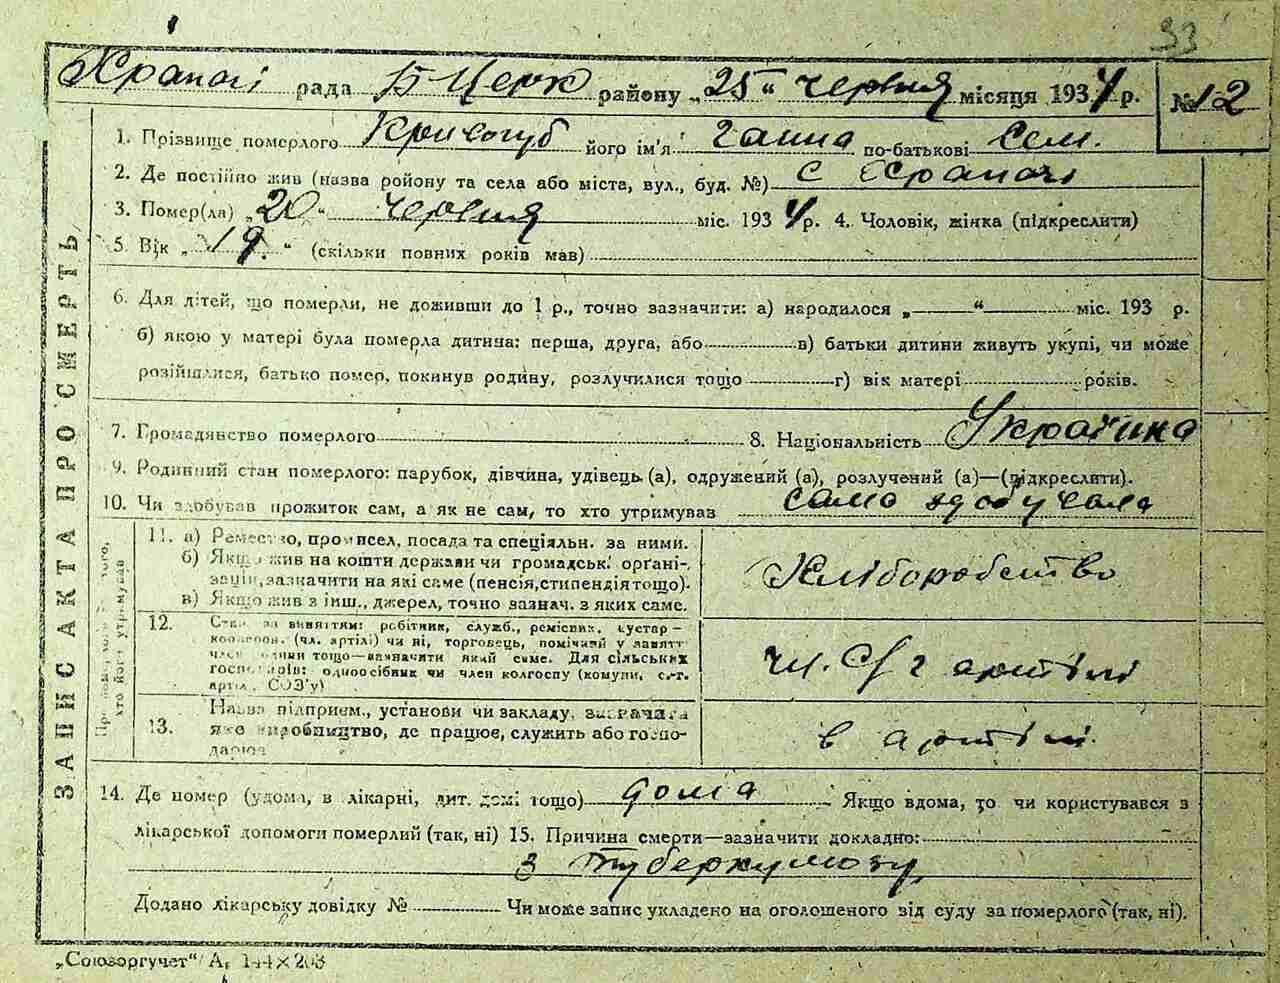 33
Храпачі рада Б Церк району „25" червня місяця 1934 р. № 12
1. Прізвище померлого Кривогуб його ім'я Ганна по-батькові Сем.
2. Де постійно жив (назва ройону та села або міста, вул., буд. №) с Храпачі
3. Помер(ла) „20" червня міс. 1934 р. 4. Чоловік, жінка (підкреслити)
5. Вік „19." (скільки повних років мав)
6. Для дітей, що померли, не доживши до 1 р., точно зазначити: а) народилося „ " міс. 193 р.
б) якою у матері була померла дитина: перша, друга, або в) батьки дитини живуть укупі, чи може
розійшлися, батько помер, покинув родину, розлучилися тощо г) вік матері років.
7. Громадянство померлого 8. Національність Українка
9. Родинний стан померлого: парубок, дівчина, удівець (а), одружений (а), розлучений (а)—(підкреслити).
10. Чи здобував прожиток сам, а як не сам, то хто утримував сама здобувала
11. а) Ремество, промисел, посада та спеціяльн. за ними.
б) Якщо жив на кошти держави чи громадськ. орґані-
зацій, зазначити на які саме (пенсія, стипендія тощо).
в) Якщо жив з інш., джерел, точно зазнач. з яких саме.
Хліборобство
12. Стан за заняттям: робітник, служб., ремісник, кустар—
кооперов. (чл. артілі) чи ні, торговець, помічний у занятті
член родини тощо—зазначити який саме. Для сільських
господарів: одноосібник чи член колгоспу (комуни, с.-г.
артіл., СОЗ'у)
чл. С/г артілі
13. Назва підприєм., установи чи закладу, зазначити
яке виробництво, де працює, служить або госпо-
дарює
в артілі
14. Де помер (удома, в лікарні, дит. домі тощо) дома Якщо вдома, то чи користувався з
лікарської допомоги померлий (так, ні) 15. Причина смерти—зазначити докладно:
з туберкульозу
Додано лікарську довідку № Чи може запис укладено на оголошеного від суду за померлого (так, ні).
ЗАПИС АКТА ПРО СМЕРТЬ
„Союзоргучет" А, 144×203